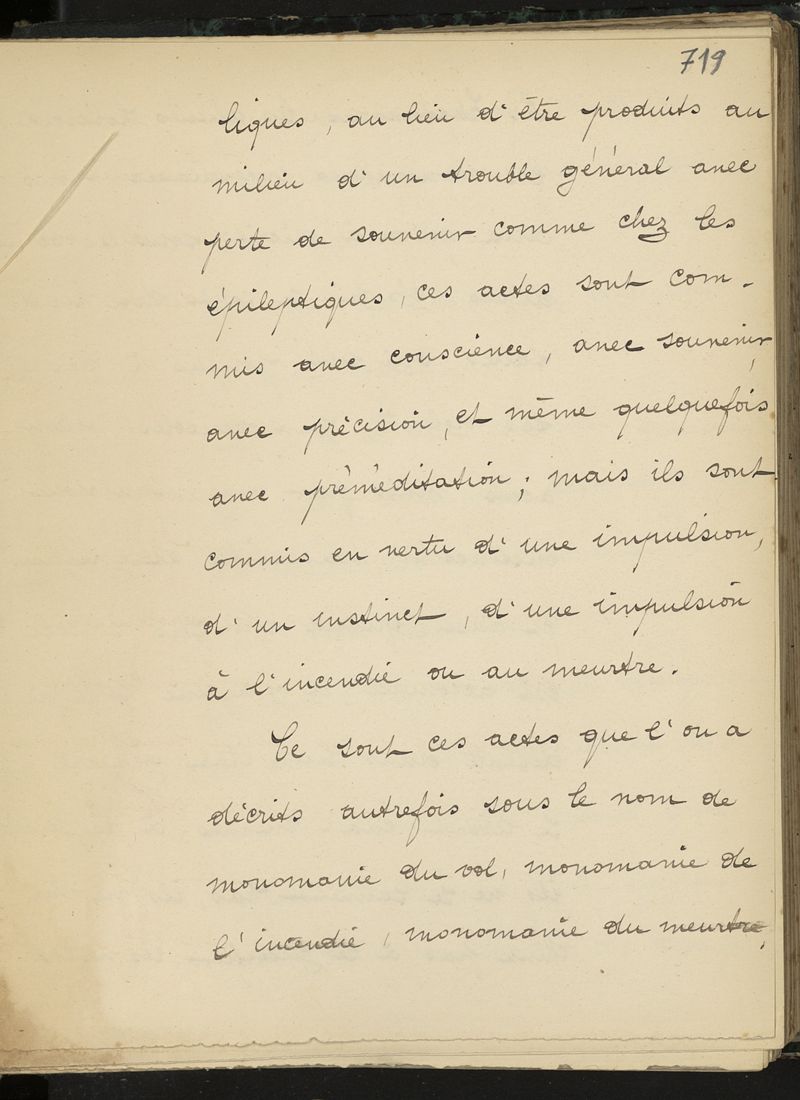 719
liques, au lieu d'être produits au
milieu d'un trouble général avec
perte de souvenir comme chez les
épileptiques, ces actes sont com-
mis avec conscience, avec souvenir,
avec précision, et même quelquefois
avec préméditation; mais ils sont
commis en vertu d'une impulsion,
d'un instinct, d'une impulsion
à l'incendie ou au meurtre.
Ce sont ces actes que l'on a
décrits autrefois sous le nom de
monomanie du vol, monomanie de
l'incendie, monomanie du meurtre,